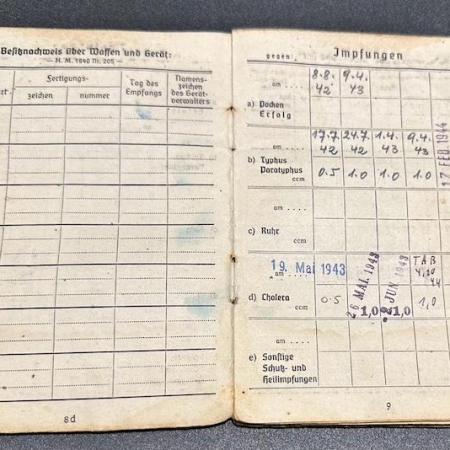 Besitznachweis über Waffen und Gerät:
— H. M. 1940 Nr. 205 —
Fertigungs-
zeichen
nummer
Tag des
Empfangs
Namens-
zeichen
des Gerät-
verwalters
8d
Impfungen
gegen
am ....
8.8.
42
9.4.
43
a) Pocken
Erfolg
am ....
17.7.
42
24.7.
42
1.4.
43
9.4.
43
17 FEB. 1944
b) Typhus
Paratyphus
ccm
0.5
1.0
1.0
1.0
am ....
c) Ruhr
ccm
am
19. Mai 1943
26 MAI. 1943
2 JUN. 1943
TAB
d) Cholera
ccm
0.5
1,0
1,0
1,0
am ....
e) Sonstige
Schutz- und
Heilimpfungen
9